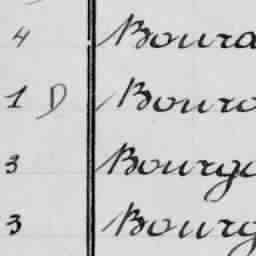 4 Boura
1 D Bouro
3 Bourgo
3 Bourg